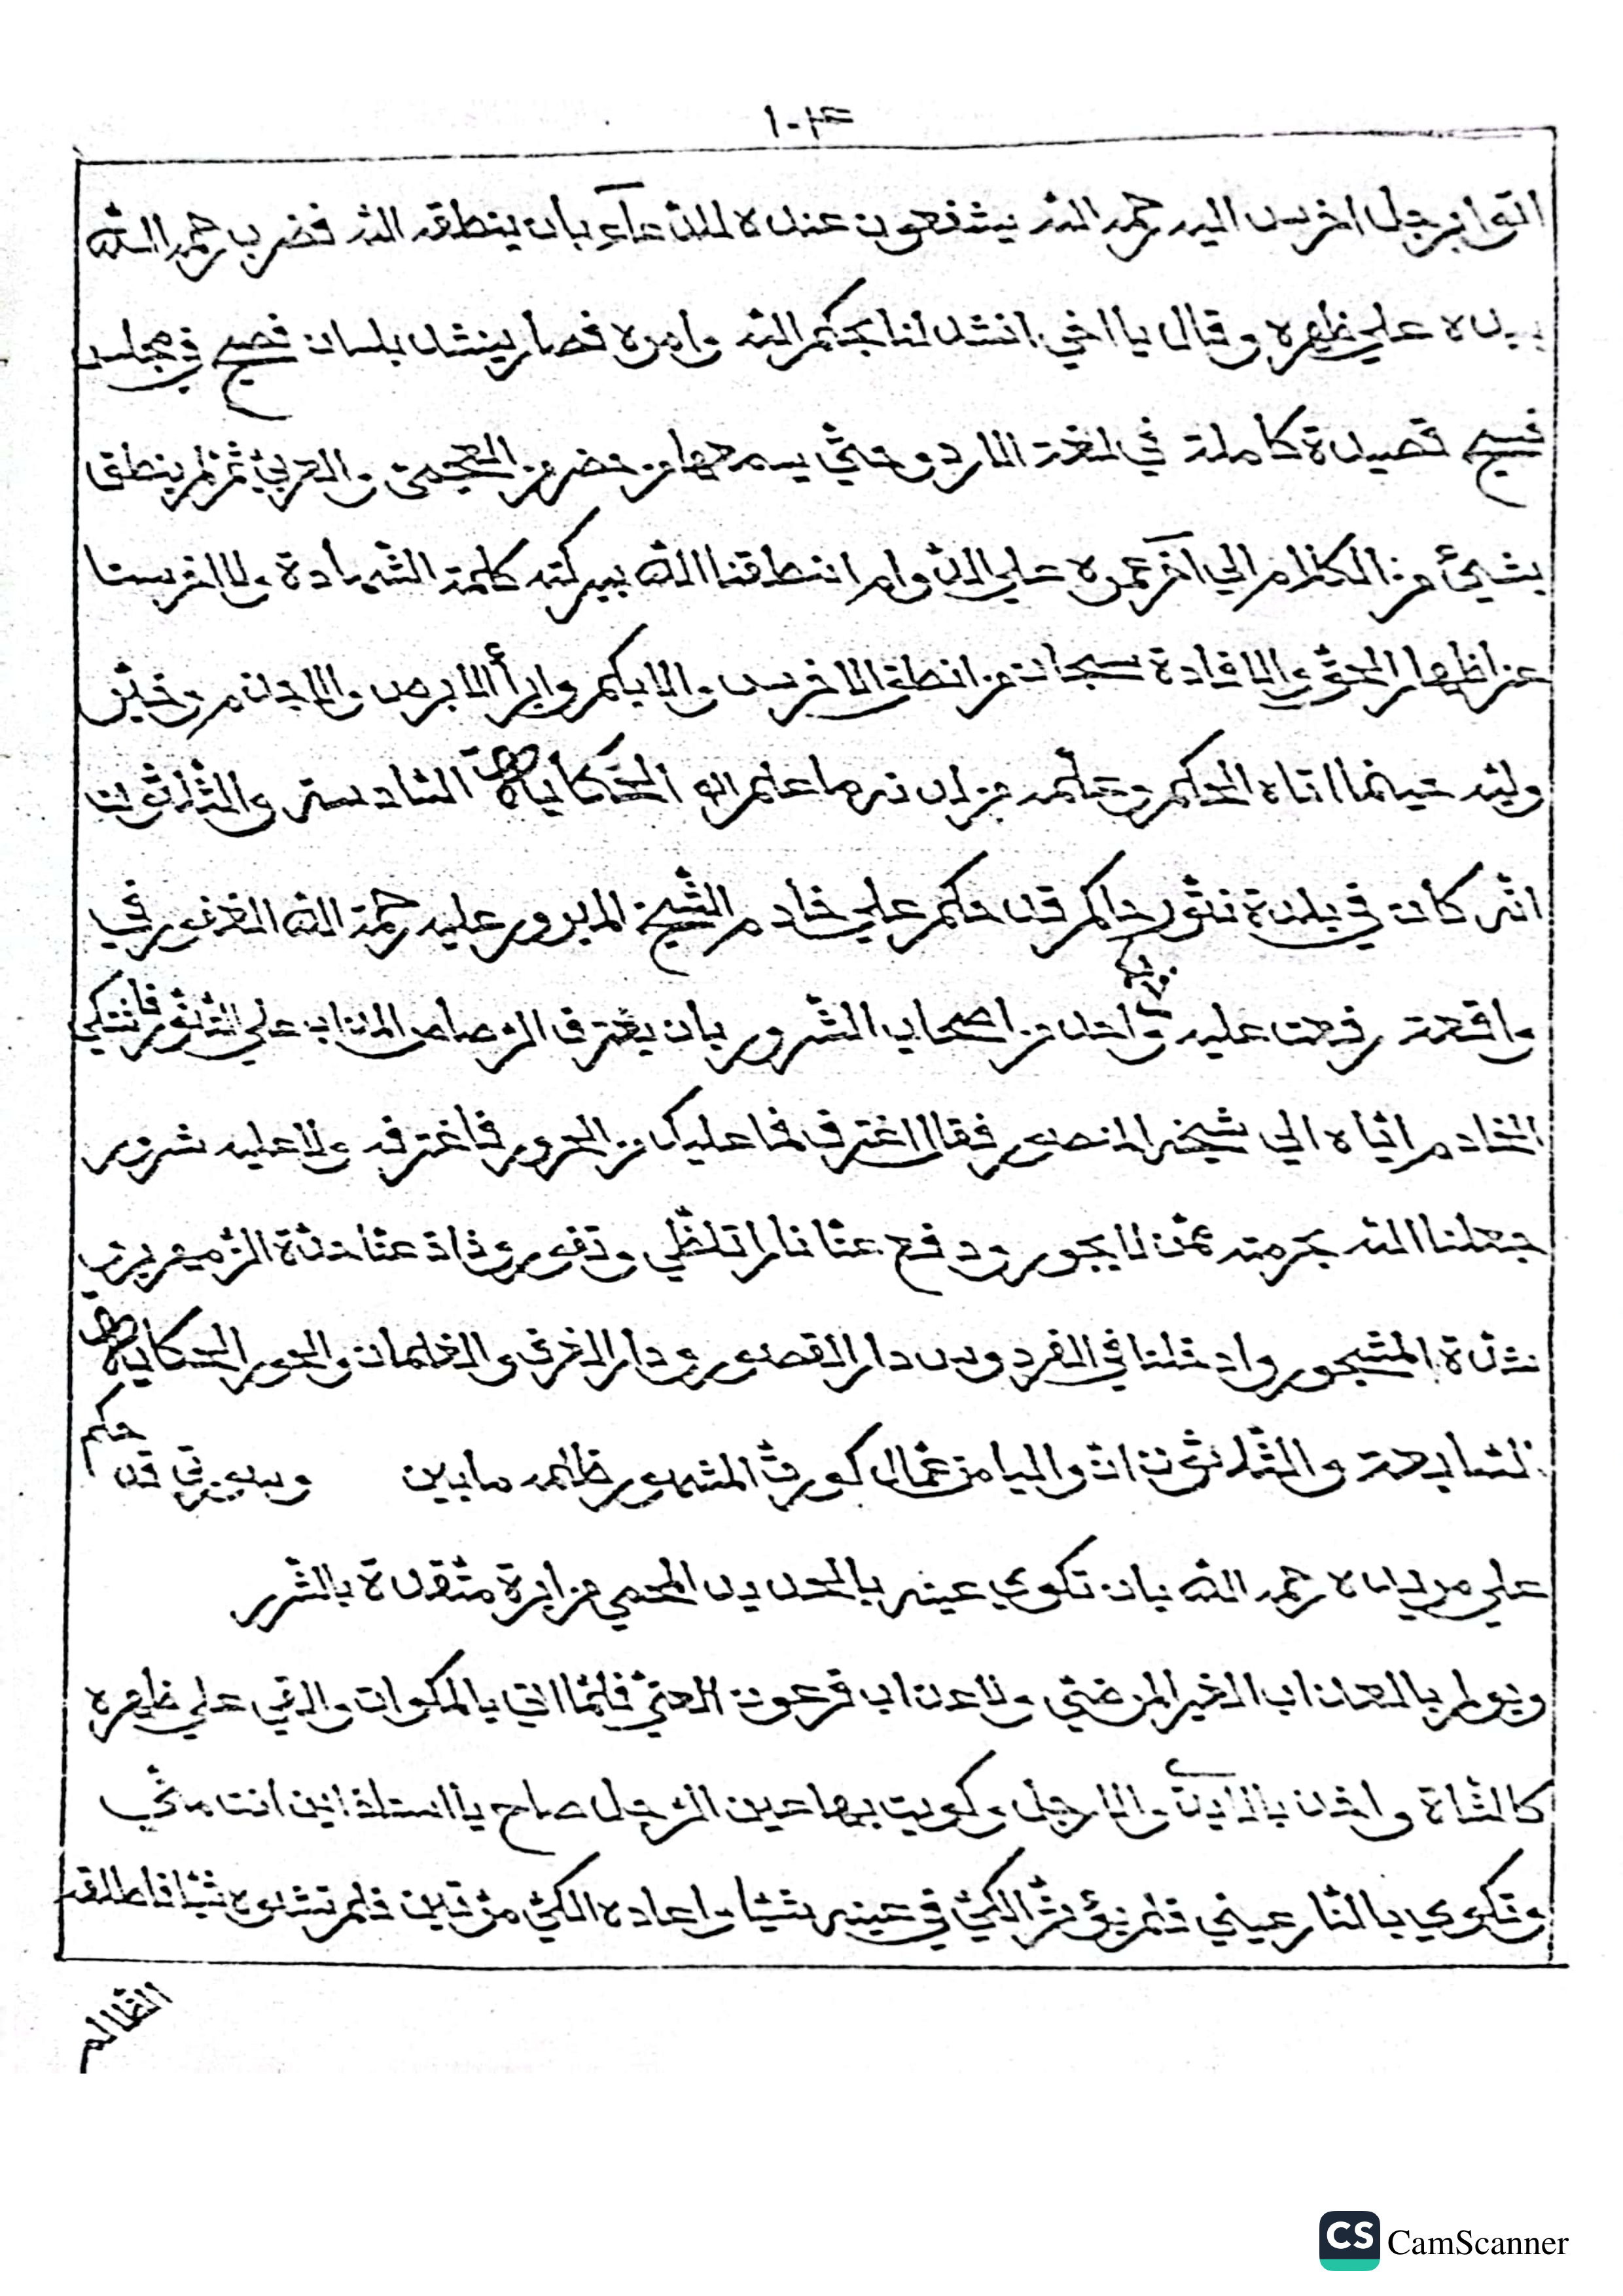 ١٠٤
اتوا برجل اخرس اليه رحمه الله يشفعون عنده للدّعآء بان ينطقه الله فضرب رحمه الله
بيده علي ظهره وقال يا اخي انشد لنا بحكم الله وامره فصار ينشد بلسان فصيح في مجلس
فسيح قصيدة كاملة في لغة الاردو حتّي يسمعها من حضر من العجميّ والعربيّ ثمّ لم ينطق
بشيئ من الكلام الي آخر عمره علي الدّوام انطقنا الله ببركته كلمة الشّهادة ولا اخرسنا
عن اظهار الحقّ والافادة سبحان من انطق الاخرس والابكم وابرأ الابرص والاجذم وخيّر
وليّه حينما اتاه الحكم وعلّمه من لدنه ما علم الو الحكاية السّادسة والثّلاثون
انّه كان في بلدة ننّور حاكم قد حكم علي خادم الشّيخ المبرور عليه رحمة الله الغفور في
واقعة رفعت عليه واحد من اصحاب الشّرور بان يغترف الرّصاص المذاب علي التّنّور فاشتكي
الخادم ايّاه الي شيخه المنصور فقال اغترف فما عليك من الحرور فاغترفه ولا عليه شرور
جعلنا الله بحرمته ممّن لا يجور ودفع عنّا نارا تلظّي وتفور وذاذ عنّا حدّة الزّمهرير
شدّة المسجور وادخلنا في الفردوس دار القصور ودار الغرف والغلمان والحور الحكاية
السّابعة والثّلاثون انّ واليا من عمّال كورث المشهور ظلمه مابين وبيوري قد حكم
علي مريده رحمه الله بان تكوي عينه بالحديد المحمي من ابرة متّقدة بالشّرر
ويولم بالعذاب الغير المرضيّ ولا عذاب فرعون العتيّ فلمّا اتي بالمكوات والقي علي ظهره
كالشّاة واخذ بالايديّ والارجل وكويت بها عين الرّجل صاح يا استاذ اين انت محّي
وتكوي بالنّار عيني فلم يؤثّر الكيّ في عينه شيئا واعاده الكيّ مرّتين فلم تشوه شيئا فاطلقه
الظّالم
CS CamScanner